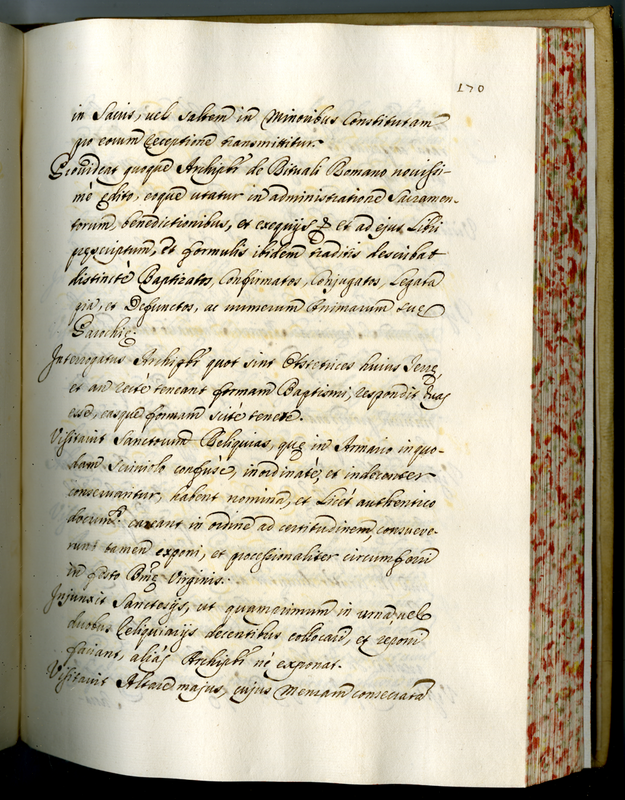 170
in Sacris, vel saltem in Minoribus Constitutam
pro eorum Receptione transmittitur.
Provideat quoque Archipbr de Rituali Romano novissi-
mè edito, eoque utatur in administratione Sacramen-
torum benedictionibus, et exequijs et ad ejus Libri
pręscriptum, et formulis ibidem traditis describat
distinctè Baptizatos, Confirmatos, Conjugatos, Legata
pia, et Defunctos, ac numerum Animarum suę
Parochię.
Interrogatus Archipbr quot sint Obstetrices huius Terrę,
et an rectè teneant formam Baptismi, respondit duas
esse, easque formam scite tenere.
Visitavit Sanctorum Reliquias, quę in Armario in quo-
dam Scriniolo confusè, inordinate, et indecenter
conservantur, habent nomina, et licet authentico
docum.to careant in ordine ad certitudinem, consueve-
runt tamen exponi, et processionaliter circumferri
in festo Bmę Virginis.
Injunxit Sanctesijs, ut quamprimum in una, vel
duobus Reliquiarijs decentibus collocari, et reponi
faciant, aliàs Archipbr nè exponat.
Visitavit Altare majus, cujus Mensam consecratā